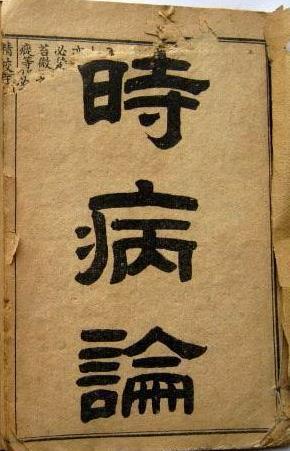 時
病
論